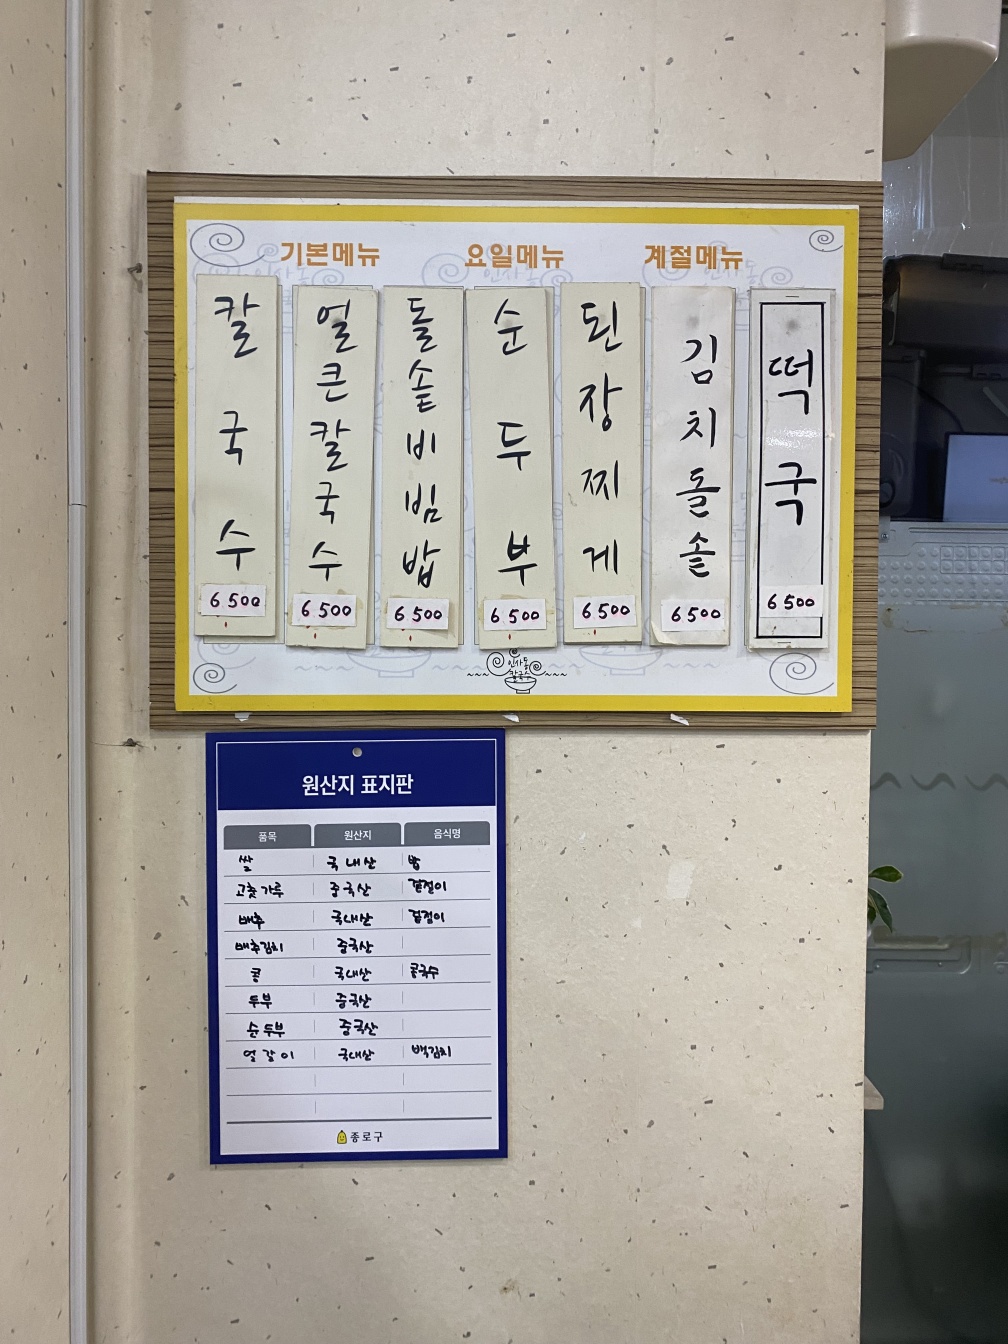 기본메뉴 요일메뉴 계절메뉴
칼국수
6500
얼큰칼국수
6500
돌솥비빔밥
6500
순두부
6500
된장찌게
6500
김치돌솥
6500
떡국
6500
인사동
칼국수
원산지 표지판
품목 원산지 음식명
쌀 국내산 밥
고춧가루 중국산 겉절이
배추 국내산 겉절이
배추김치 중국산
콩 국내산 콩국수
두부 중국산
순두부 중국산
얼갈이 국내산 백김치
종로구